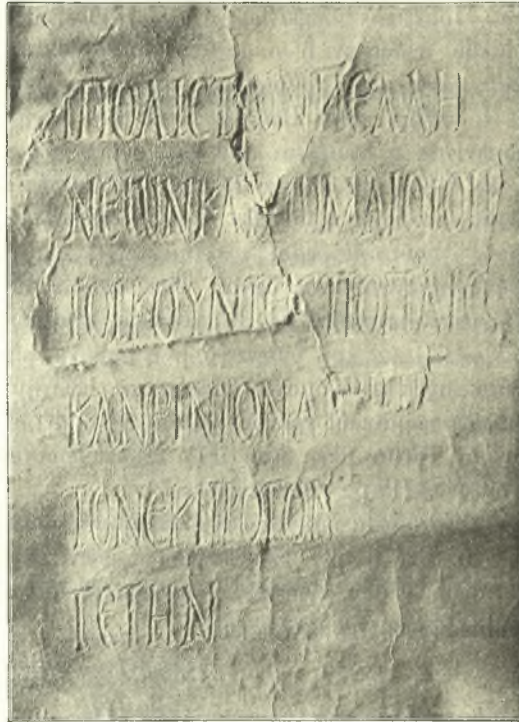 ΗΠΟΛΙϹΤΩΝΠΕΛΛΗ
ΝΕΩΝΚΑΙΡΩΜΑΙΟΙΟΙ
ΤΟΙΚΟΥΝΤΕϹΠΟΠΛΙΟ
ΚΑΝΡΙΝΙΟΝΑ
ΤΟΝΕΚΠΡΟΓΟΝ
ΓΕΤΗΝ